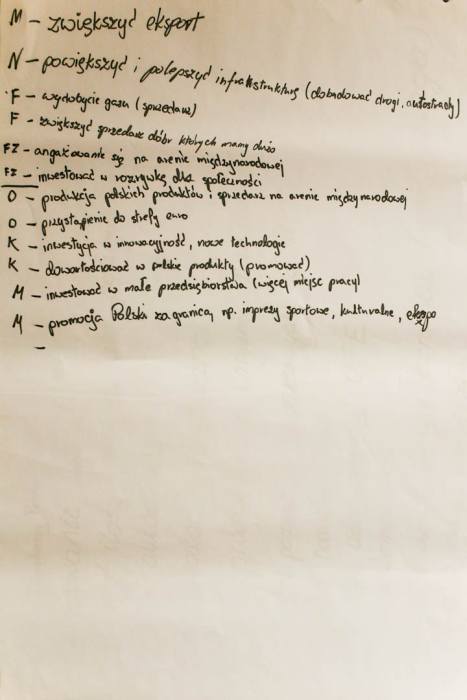 M - zwiększyć eksport
N - powiększyć i polepszyć infrakstrukturę (dobudować drogi, autostrady)
F - wydobycie gazu (sprzedaż)
F - zwiększyć sprzedaż dóbr których mamy dużo
FZ - angażowanie się na arenie międzynarodowej
FZ - inwestować w rozrywkę dla społeczności
O - produkcja polskich produktów i sprzedaż na arenie międzynarodowej
O - przystąpienie do strefy euro
K - inwestycja w innowacyjność, nowe technologie
K - dowartościować w polskie produkty (promować)
M - inwestować w małe przedsiębiorstwa (więcej miejsc pracy)
M - promocja Polski za granicą np. imprezy sportowe, kulturalne, ekspo
-